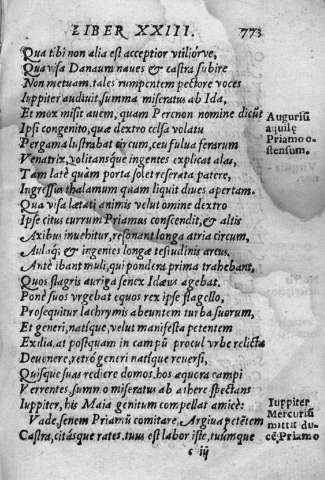 LIBER XXIII. 773
Qua tibi non alia est acceptior vtiliórve,
Qua visa Danaum naues & castra subire
Non metuam. tales rumpentem pectore voces
Iuppiter audiuit, summa miseratus ab Ida,
Et mox misit auem, quam Percnon nomine dicũt
Ipsi congenito, quæ dextro celsa volatu
Pergama lustrabat circum, ceu fulua ferarum
Venatrix, volitansque ingentes explicat alas,
Tam latè quàm porta solet reserata patere,
Ingressu thalamum quàm liquit diues apertam.
Qua visa lætati animis velut omine dextro
Ipse citus currum Priamus conscendit, & altis
Axibus inuehitur, resonant longa atria circum,
Aulaq; & ingentes longæ testudinis arcus.
Antè ibant muli, qui pondera prima trahebant,
Quos flagris auriga senex Idæus agebat.
Ponè suos vrgebat equos rex ipse flagello,
Prosequitur lachrymis abeuntem turba suorum,
Et generi, natique, velut manifesta petentem
Exilia. at postquam in campũ procul vrbe relicta
Deuenere, retrò generi natique reuersi,
Quisque suas rediere domos, hos æquora campi
Verrentes, summo miseratus ab æthere spectans
Iuppiter, his Maia genitum compellat amicè:
Vade, senem Priamũ comitare, Argiua petẽtem
Castra, citásque rates. tuus est labor iste, tuúmque
c iij
Auguriũ
aquilę
Priamo o-
stensum.
Iuppiter
Mercuriũ
mittit du-
cẽ Priamo